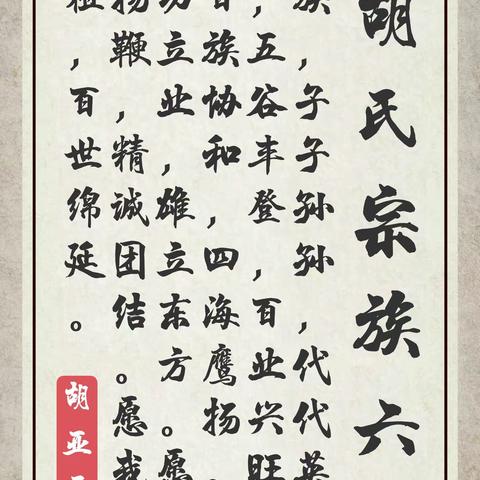 胡氏宗族六
族，子子孙孙，代代英
，五谷丰登，百业兴旺
百族协和，四海鹰扬
功立业，雄立东方。愿
扬鞭，精诚团结。愿我
祖，百世绵延。
胡亚